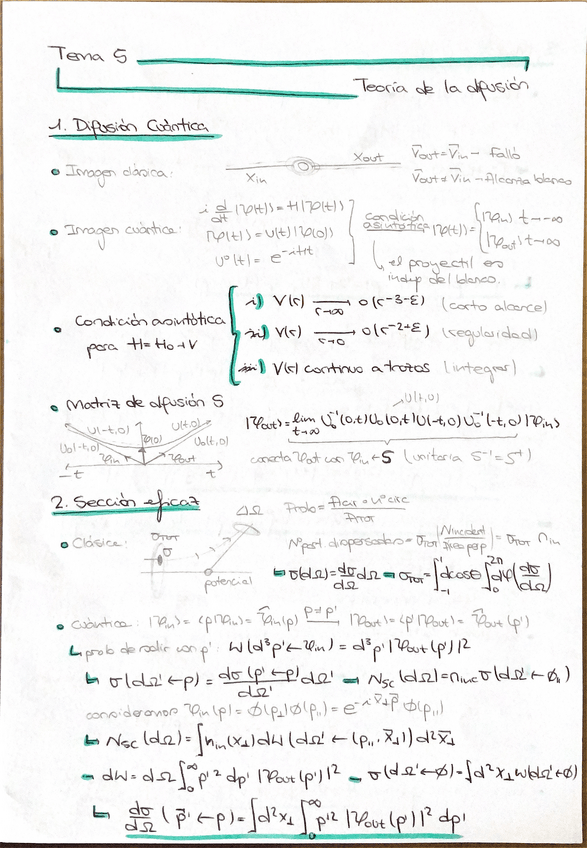 Tema 5
Teoría de la difusión
1. Difusión Cuántica
• Imagen clásica: X_in X_out V̄out = V̄in → falló
V̄out ≠ V̄in → Alcanza blanco
• Imagen cuántica: i d/dt |ψ(t)⟩ = H|ψ(t)⟩
|ψ(t)⟩ = U(t)|ψ(0)⟩
U⁰(t) = e^{-iHt}
condición asintótica |ψ(t)⟩ = { |ψin⟩ t→-∞
|ψout⟩ t→∞
↳ el proyectil es
indep del blanco.
• Condición asintótica
para H = H0 + V
i) V(r) →_{r→∞} O(r^{-3-ε}) (corto alcance)
ii) V(r) →_{r→0} O(r^{-2+ε}) (regularidad)
iii) V(r) continuo a trozos (integrar)
• Matriz de difusión S
U(-t,0) ψ(0) U(t,0)
U0(-t,0) ψin ψout U0(t,0)
-t t
U(t,0)
|ψout⟩ = lim_{t→∞} U0^{-1}(0,t) U0(0,t) U(-t,0) U0^{-1}(-t,0) |ψin⟩
conecta ψout con ψin ← S (unitaria S^{-1} = S^†)
2. Sección eficaz
• Clásica: σTOT σ ΔΩ potencial
σ(dΩ) = dσ/dΩ dΩ → σTOT = ∫_{-1}^{1} dcosθ ∫_0^{2π} dφ (dσ/dΩ)
• Cuántica: |ψin⟩ = ⟨p|ψin⟩ = ψ̃in(p) p→p' |ψout⟩ = ⟨p'|ψout⟩ = ψ̃out(p')
↳ prob de salir con p': W(d³p' ← ψin) = d³p' |ψout(p')|²
↳ σ(dΩ' ← p) = dσ(p' ← p)/dΩ' dΩ' → Nsc(dΩ) = ninc σ(dΩ ← φ∥)
consideramos ψin(p) = φ(p⊥)φ(p∥) = e^{-i x̄⊥ p̄} φ(p∥)
↳ Nsc(dΩ) = ∫ nin(x⊥) dW (dΩ' ← (p∥, x̄⊥)) d²x̄⊥
→ dW = dΩ ∫_0^∞ p'² dp' |ψout(p')|² → σ(dΩ' ← φ) = ∫ d²x⊥ W(dΩ' ← φ)
↳ dσ/dΩ (p̄' ← p) = ∫ d²x⊥ ∫_0^∞ p'² |ψout(p')|² dp'